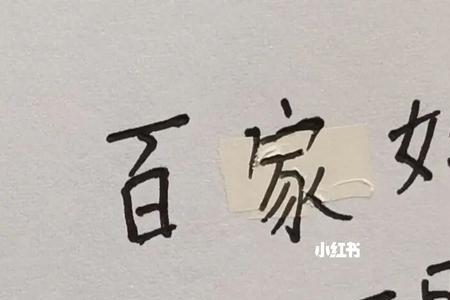 百家
小红书